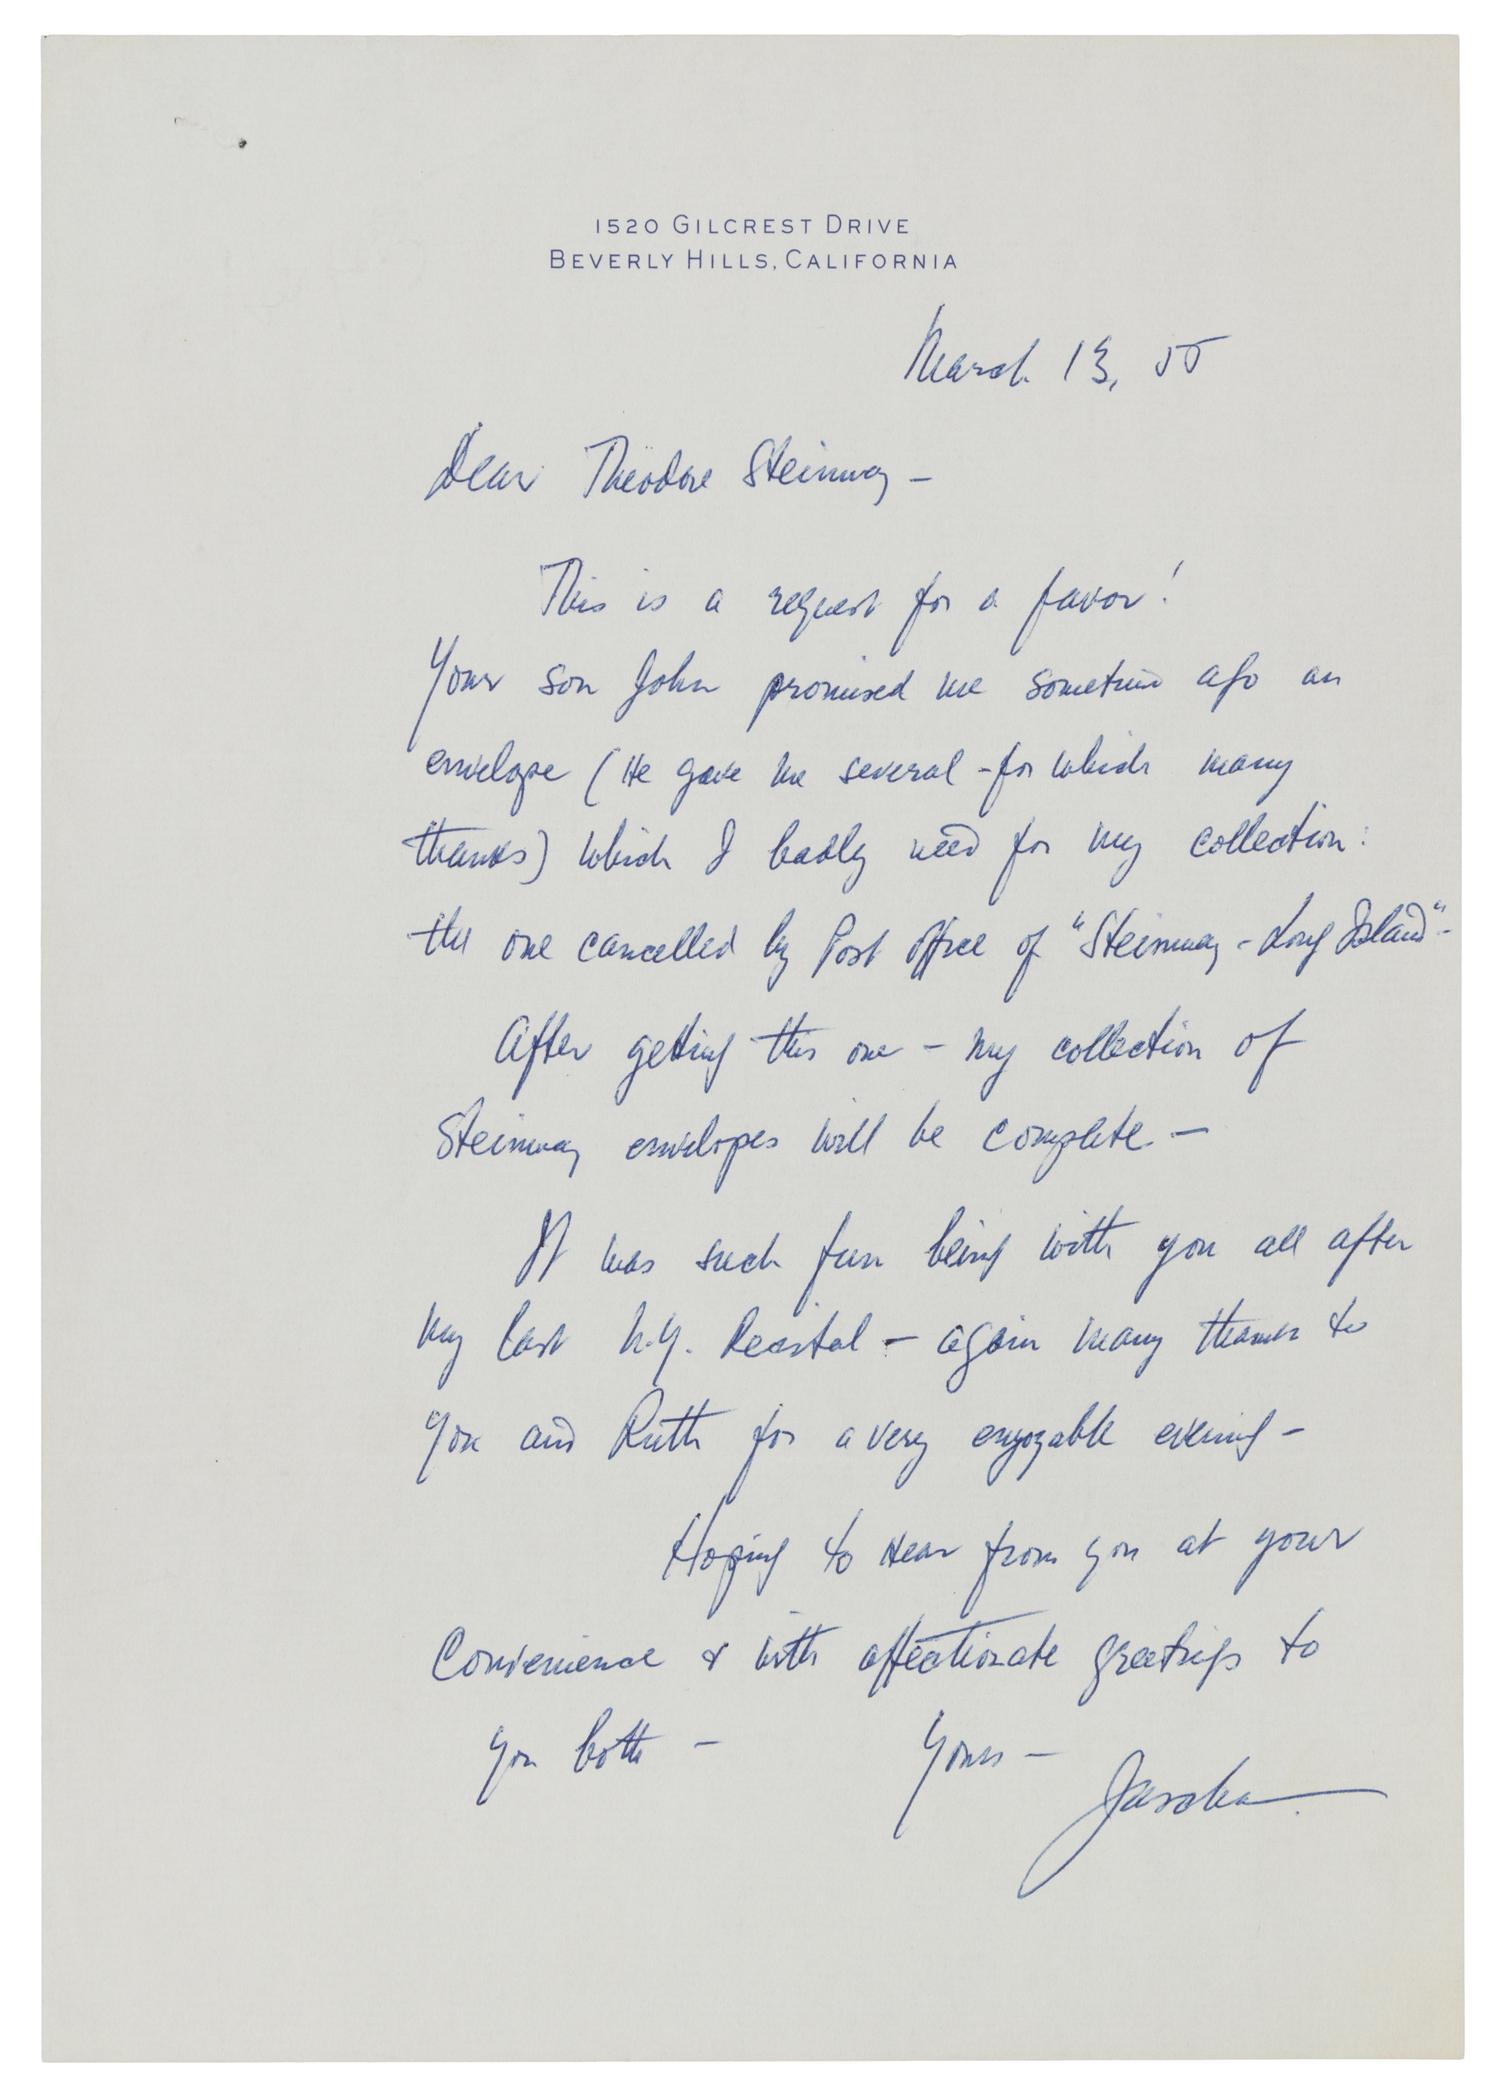 1520 GILCREST DRIVE
BEVERLY HILLS, CALIFORNIA
March 13, 55
Dear Theodore Steinway –
This is a request for a favor!
Your son John promised me sometime ago an
envelope (He gave me several – for which many
thanks) which I badly need for my collection:
the one cancelled by Post Office of "Steinway – Long Island" –
After getting this one – my collection of
Steinway envelopes will be complete. –
It was such fun being with you all after
my last N.Y. Recital – again many thanks to
you and Ruth for a very enjoyable evening –
Hoping to hear from you at your
Convenience & with affectionate greetings to
you both – Yours – Jascha